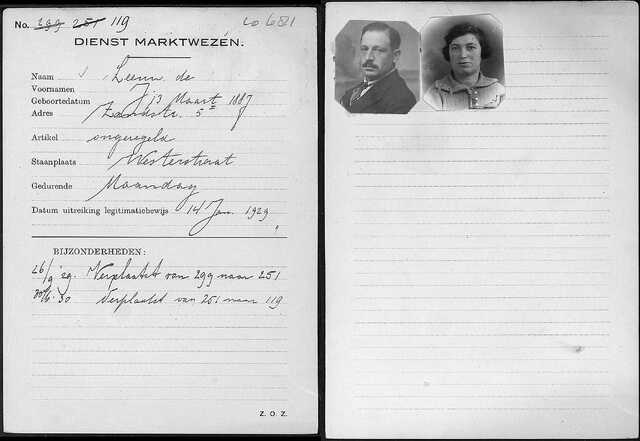 No. 299 251 119
60681
DIENST MARKTWEZEN.
Naam Leeuw de
Voornamen J
Geboortedatum 13 Maart 1887
Adres Zandstr. 5
Artikel ongeregeld
Staanplaats Westerstraat
Gedurende Maandag
Datum uitreiking legitimatiebewijs 14 Jan. 1929
BIJZONDERHEDEN:
26/9 '29. Verplaatst van 299 naar 251
30 Verplaatst van 251 naar 119
Z. O. Z.